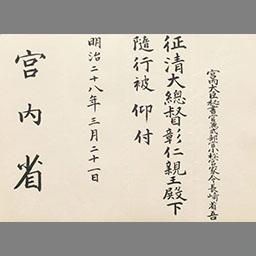 宮内大臣秘書官兼式部官小松宮家令長崎省吾
征清大總督彰仁親王殿下
隨行被 仰付
明治二十八年三月二十一日
宮内省